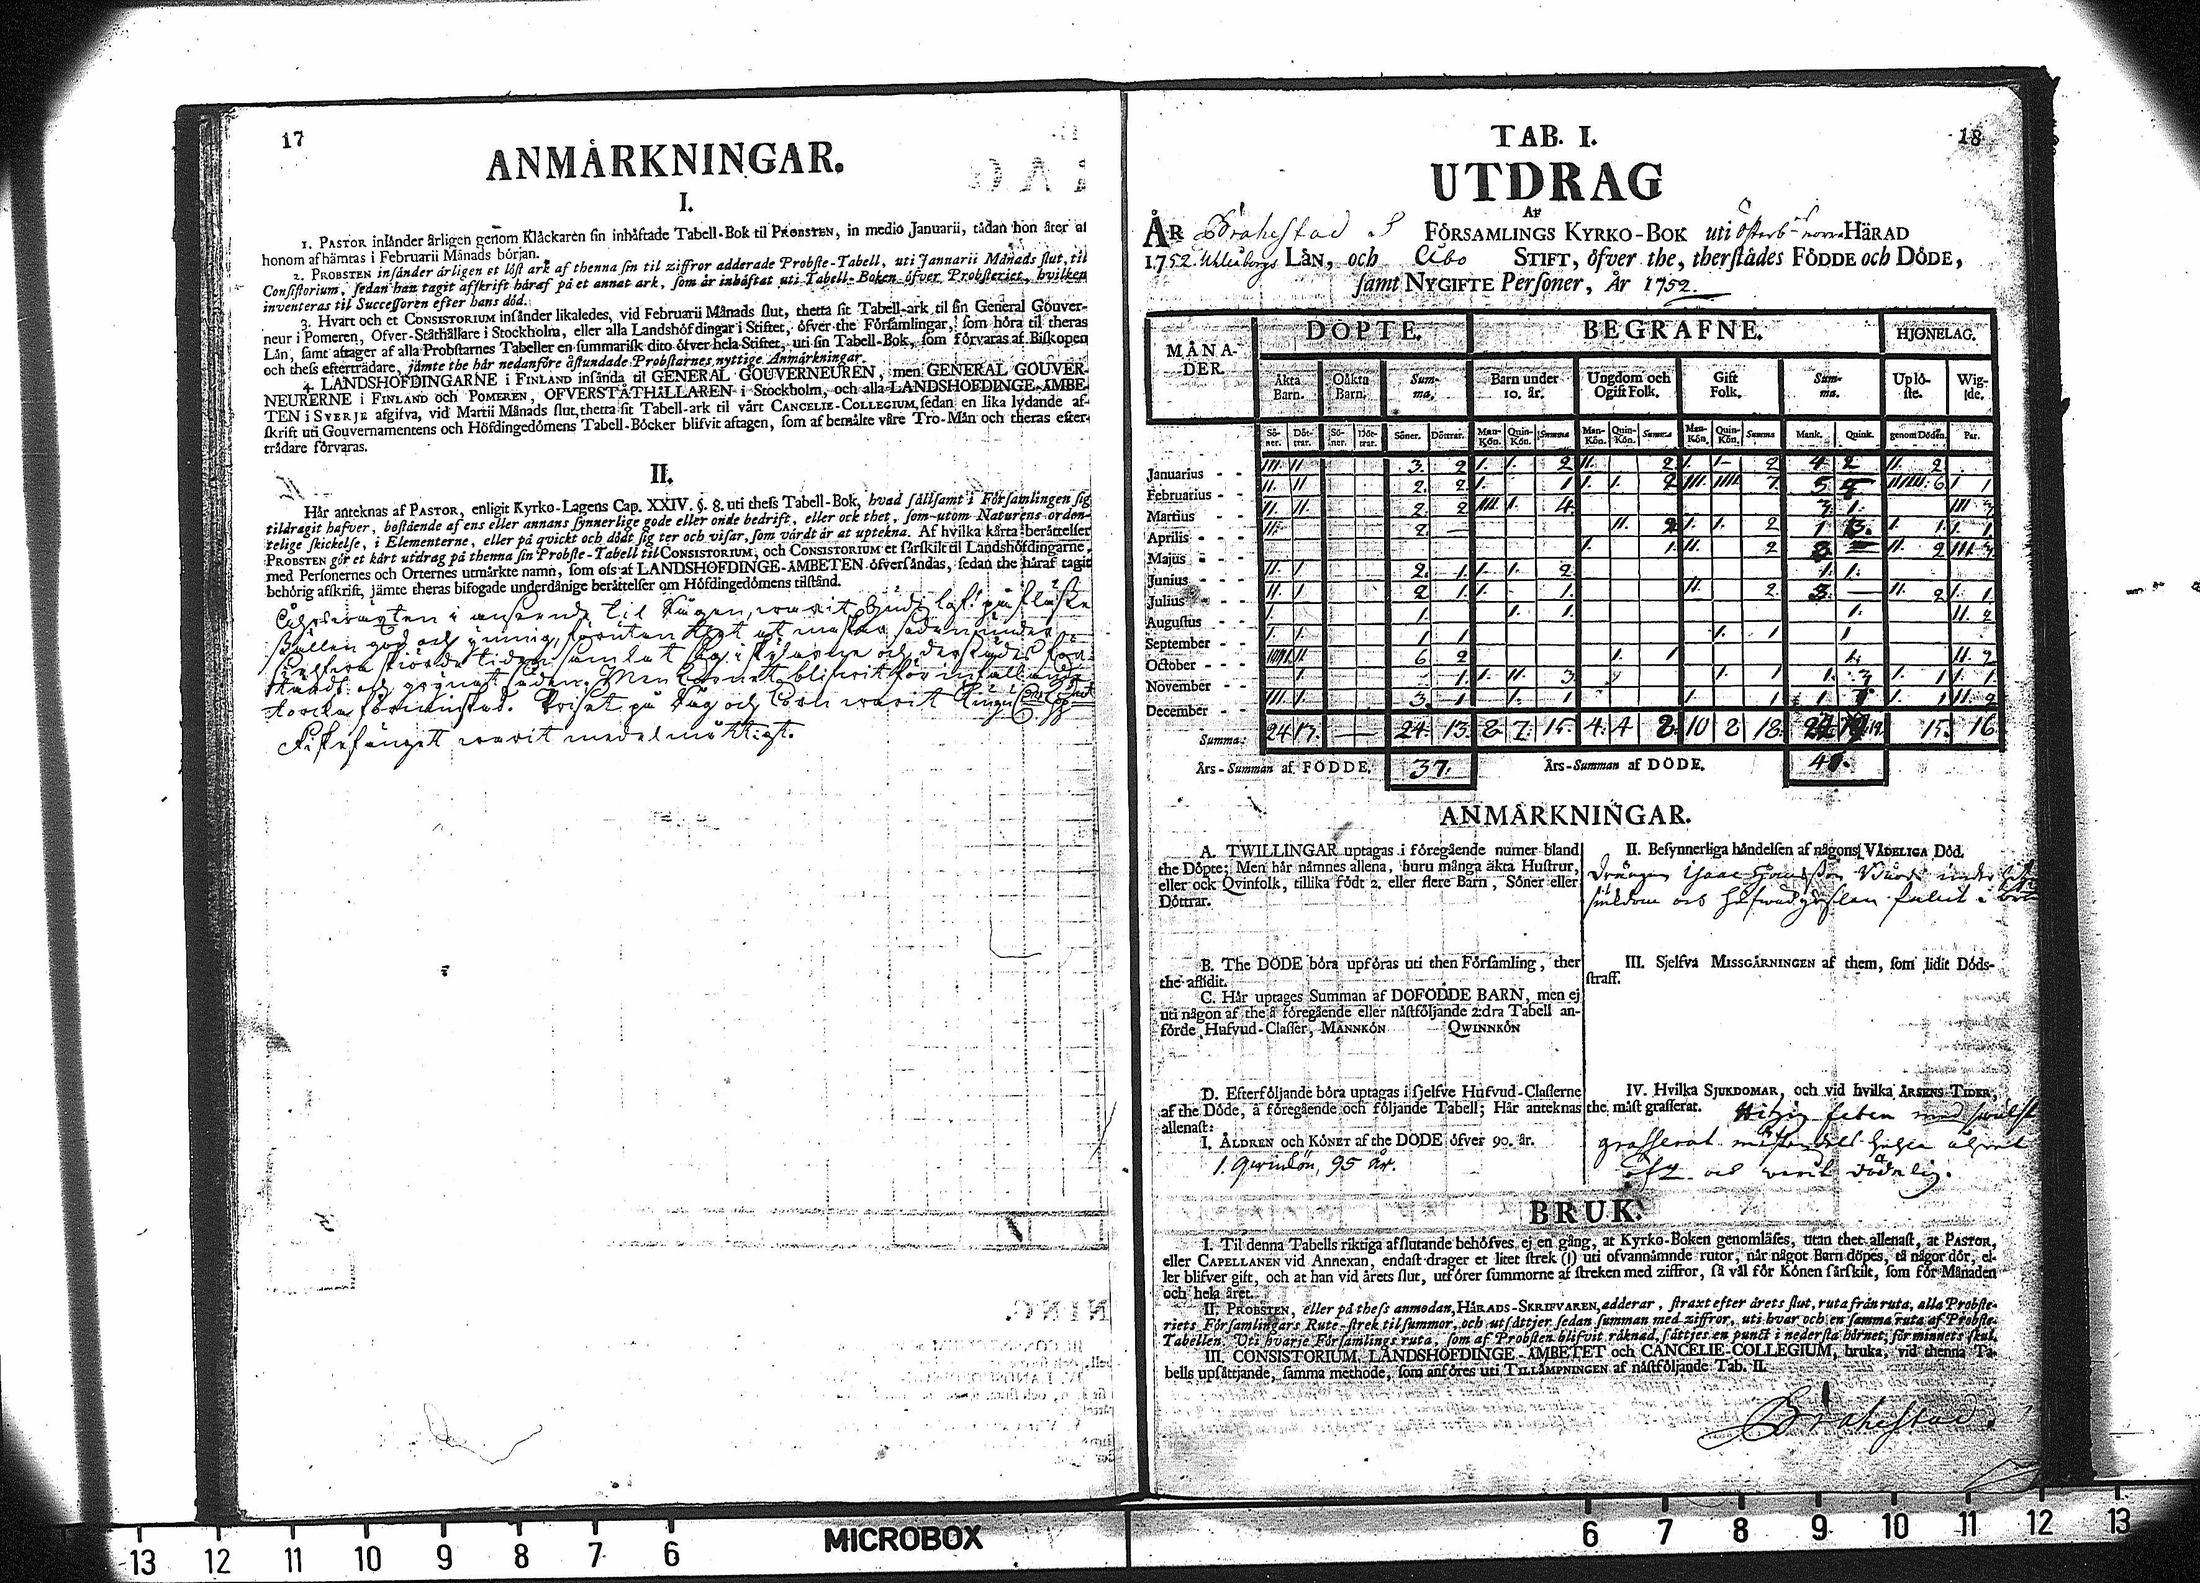 17
ANMÅRKNINGAR.
I.
1. PASTOR insånder årligen genom Klåckaren sin inhåftade Tabell-Bok til PROBSTEN, in medio Januarii, tådan hon åter af
honom afhåmtas i Februarii Månads bőrjan.
2. PROBSTEN insånder årligen et lőst ark af thenna sin til ziffror adderade Probste-Tabell, uti Januarii Månads slut, til
Consistorium, sedan han tagit afskrift håraf på et annat ark, som år inhåftat uti Tabell-Boken ófver Probsteriet, hvilken
inventeras til Successoren efter hans död.
3. Hvart och et CONSISTORIUM insånder likaledes, vid Februarii Månads slut, thetta sit Tabell-ark til sin General Gouver-
neur i Pomeren, Ofver-Ståthållare i Stockholm, eller alla Landshófdingar i Stiftet, ófver the Fórsamlingar, som hóra til theras
Lån, samt aftager af alla Probstarnes Tabeller en summarisk dito ófver hela Stiftet, uti sin Tabell-Bok, som fórvaras af Biskopen
och thess eftertrådare, jåmte the hår nedanfóre åstundade Probstarnes nyttige Anmårkningar.
4. LANDSHÓFDINGARNE i FINLAND insånda til GENERAL GOUVERNEUREN, men GENERAL GOUVER-
NEURERNE i FINLAND och POMEREN, OFVERSTÅTHÅLLAREN i Stockholm, och alla LANDSHÓFDINGE-ÅMBE-
TEN i SVERJE afgifva, vid Martii Månads slut, thetta sit Tabell-ark til vårt CANCELIE-COLLEGIUM, sedan en lika lydande af-
skrift uti Gouvernamentens och Hófdingedómens Tabell-Bócker blifvit aftagen, som af bemålte våre Tro-Mån och theras efter-
trådare fórvaras.
II.
Hår anteknas af PASTOR, enligit Kyrko-Lagens Cap. XXIV. §. 8. uti thess Tabell-Bok, hvad sållsamt i Fórsamlingen sig
tildragit hafver, bestående af ens eller annans synnerlige gode eller onde bedrift, eller ock thet, som utom Naturens orden-
telige skickelse, i Elementerne, eller på qvickt och dódt sig ter och visar, som vårdt år at uptekna. Af hvilka kårta beråttelser
PROBSTEN gór et kårt utdrag på thenna sin Probste-Tabell til CONSISTORIUM, och CONSISTORIUM et sårskilt til Landshófdingarne,
med Personernes och Orternes utmårkte namn, som oss af LANDSHÓFDINGE-ÅMBETEN ófversåndas, sedan the håraf tagit
behórig afskrift, jåmte theras bifogade underdånige beråttelser om Hófdingedómens tilstånd.
Åhrswäxten i anseende til Rågen, warit Gudi lof! på fläste
Ställen god och ymnig,
Men kornet blifwit för infallande
torcka förminskad. Priset på Råg och Korn warit
Fiskefånget warit medelmåttigt.
18
TAB. I.
UTDRAG
AF
ÅR Brahestad S FÓRSAMLINGS KYRKO-BOK uti Österb. norra HÅRAD
1752. Uhleåborgs LÅN, och Åbo STIFT, ófver the, therstådes FÓDDE och DÓDE,
samt NYGIFTE Personer, År 1752.
MÅNA-DER. DÓPTE. BEGRAFNE. HJONELAG.
Åkta Barn. Oåkta Barn. Sum-ma. Barn under 10. år. Ungdom och Ogift Folk. Gift Folk. Sum-ma. Upló-ste. Wig-de.
Só-ner. Dót-trar. Só-ner. Dót-trar. Sóner. Dóttrar. Man-Kón. Quin-Kón. Summa Man-Kón. Quin-Kón. Summa Man-Kón. Quin-Kón. Summa Mank. Quink. genom Dóden. Par.
Januarius - - III II 3. 2 1. 1. 2 II. 2 1. 1- 2 4 2 II. 2
Februarius - - II. II 2. 2. 1. 1 1. 1. 2 III. IIII. 7. 5 IIIIII. 6 1 1
Martius - - II. II 2. 2 IIII 1. 4. 3 1. III 3
Aprilis - - II. 2. II. 2 1. 1. 2 1 3. 1. 1. 1. 1.
Majus - - 1. 1. II. 2 II. 2 III. 3
Junius - - II. 1 2. 1. 1. 1. 2 1. 1.
Julius - - II. 1 2 1. 1. 1. II. 2. 3. — II. 2 1. 1.
Augustus - - 1. 1. 1. 1 1. II. 2
September - - 1. 1. 1 1 1. 1 1
October - - 6 2 1. 1 1. II. 2
November - - 1. 1. 1. II. 3 1. 1 1. 3 1. 1 1. 1.
December - - III. 1. 3. 1 1. 1 1. 1 1. 1. 1 II. 2
Summa: 24 13. — 24. 13. 8. 7. 15. 4. 4 8. 10 8 18. 15. 16.
Års-Summan af FÓDDE. 37. Års-Summan af DÓDE. 41.
ANMÅRKNINGAR.
A. TWILLINGAR uptagas i fóregående numer bland
the Dópte; Men hår nåmnes allena, huru många åkta Hustrur,
eller ock Qvinfolk, tillika fódt 2. eller flere Barn, Sóner eller
Dóttrar.
B. The DÓDE bóra upfóras uti then Fórsamling, ther
the aflidit.
C. Hår uptages Summan af DÓFÓDDE BARN, men ej
uti någon af the å fóregående eller nåstfóljande 2:dra Tabell an-
fórde Hufvud-Classer, MANNKÓN QWINNKÓN
D. Efterfóljande bóra uptagas i sjelfve Hufvud-Classerne
af the Dóde, å fóregående och fóljande Tabell; Hår anteknas
allenast:
I. ÅLDREN och KÓNET af the DÓDE ófver 90. år.
1. Qwinkön, 95 år.
II. Besynnerliga håndelsen af någons VÅDELIGA Dód.
Drängen Isaac
III. Sjelfva MISSGÅRNINGEN af them, som lidit Dóds-
straff.
IV. Hvilka SJUKDOMAR, och vid hvilka ÅRSENS TIDER,
the måst grasserat. Hitzig feber med
grasserat mästendels hela åhret
och warit dödelig.
BRUK.
I. Til denna Tabells riktiga afslutande behófves ej en gång, at Kyrko-Boken genomlåses, utan thet allenast, at PASTOR,
eller CAPELLANEN vid Annexan, endast drager et litet strek (|) uti ofvannåmnde rutor, når något Barn dópes, tå någor dór, el-
ler blifver gift, och at han vid årets slut, utfórer summorne af streken med ziffror, så vål fór Kónen sårskilt, som fór Månaden
och hela året.
II. PROBSTEN, eller på thess anmodan, HÅRADS-SKRIFVAREN, adderar, straxt efter årets slut, ruta från ruta, alla Probste-
riets Fórsamlingars Rute-strek til summor, och utsåttjer sedan summan med ziffror, uti hvar och en samma ruta af Probste-
Tabellen. Uti hvarje Fórsamlings ruta, som af Probsten blifvit råknad, såttjes en punct i nedersta hórnet, fór minnets skul.
III. CONSISTORIUM, LANDSHÓFDINGE-ÅMBETET och CANCELIE-COLLEGIUM, bruka, vid thenna Ta-
bells upsåttjande, samma methode, som anfóres uti TILLÅMPNINGEN af nåstfóljande Tab. II.
Brahestad.
13 12 11 10 9 8 7 6 MICROBOX 6 7 8 9 10 11 12 13